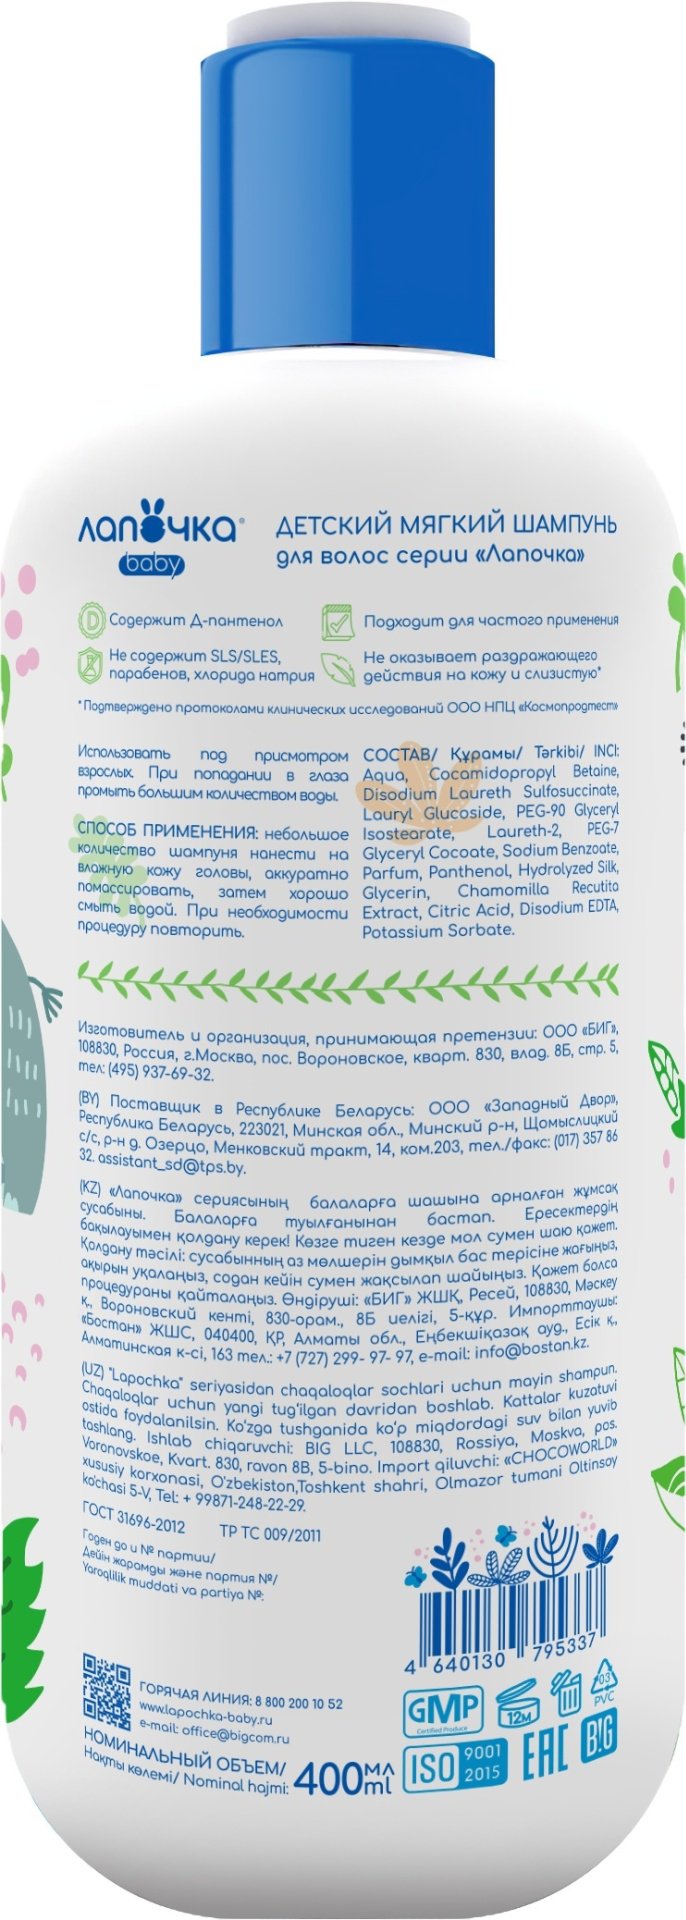 лапочка®
baby
ДЕТСКИЙ МЯГКИЙ ШАМПУНЬ
для волос серии «Лапочка»
D
Содержит Д-пантенол
Подходит для частого применения
Не содержит SLS/SLES,
парабенов, хлорида натрия
Не оказывает раздражающего
действия на кожу и слизистую*
*Подтверждено протоколами клинических исследований ООО НПЦ «Космопродтест»
Использовать под присмотром
взрослых. При попадании в глаза
промыть большим количеством воды.
СПОСОБ ПРИМЕНЕНИЯ: небольшое
количество шампуня нанести на
влажную кожу головы, аккуратно
помассировать, затем хорошо
смыть водой. При необходимости
процедуру повторить.
СОСТАВ/ Құрамы/ Tərkibi/ INCI:
Aqua, Cocamidopropyl Betaine,
Disodium Laureth Sulfosuccinate,
Lauryl Glucoside, PEG-90 Glyceryl
Isostearate, Laureth-2, PEG-7
Glyceryl Cocoate, Sodium Benzoate,
Parfum, Panthenol, Hydrolyzed Silk,
Glycerin, Chamomilla Recutita
Extract, Citric Acid, Disodium EDTA,
Potassium Sorbate.
Изготовитель и организация, принимающая претензии: ООО «БИГ»,
108830, Россия, г.Москва, пос. Вороновское, кварт. 830, влад. 8Б, стр. 5,
тел: (495) 937-69-32.
(BY) Поставщик в Республике Беларусь: ООО «Западный Двор»,
Республика Беларусь, 223021, Минская обл., Минский р-н, Щомыслицкий
с/с, р-н д. Озерцо, Менковский тракт, 14, ком.203, тел./факс: (017) 357 86
32. assistant_sd@tps.by.
(KZ) «Лапочка» сериясының балаларға шашына арналған жұмсақ
сусабыны. Балаларға туылғанынан бастап. Ересектердің
бақылауымен қолдану керек! Көзге тиген кезде мол сумен шаю қажет.
Қолдану тәсілі: сусабынның аз мөлшерін дымқыл бас терісіне жағыңыз,
ақырын уқалаңыз, содан кейін сумен жақсылап шайыңыз. Қажет болса
процедураны қайталаңыз. Өндіруші: «БИГ» ЖШҚ, Ресей, 108830, Мәскеу
қ., Вороновский кенті, 830-орам., 8Б иелігі, 5-құр. Импорттаушы:
«Бостан» ЖШС, 040400, ҚР, Алматы обл., Еңбекшіқазақ ауд., Есік қ.,
Алматинская к-сі, 163 тел.: +7 (727) 299- 97- 97, e-mail: info@bostan.kz.
(UZ) "Lapochka" seriyasidan chaqaloqlar sochlari uchun mayin shampun.
Chaqaloqlar uchun yangi tug‘ilgan davridan boshlab. Kattalar kuzatuvi
ostida foydalanilsin. Ko‘zga tushganida ko‘p miqdordagi suv bilan yuvib
tashlang. Ishlab chiqaruvchi: BIG LLC, 108830, Rossiya, Moskva, pos.
Voronovskoe, Kvart. 830, ravon 8B, 5-bino. Import qiluvchi: «CHOCOWORLD»
xususiy korxonasi, O‘zbekiston,Toshkent shahri, Olmazor tumani Oltinsoy
ko‘chasi 5-V, Tel: + 99871-248-22-29.
ГОСТ 31696-2012 ТР ТС 009/2011
Годен до и № партии/
Дейін жарамды және партия №/
Yaroqlilik muddati va partiya №:
4 640130 795337
ГОРЯЧАЯ ЛИНИЯ: 8 800 200 10 52
www.lapochka-baby.ru
e-mail: office@bigcom.ru
GMP
Certified Produce
12М
03
PVC
НОМИНАЛЬНЫЙ ОБЪЕМ/
Нақты көлемі/ Nominal hajmi:
400 мл
ml
ISO 9001
2015
EAC
B!G